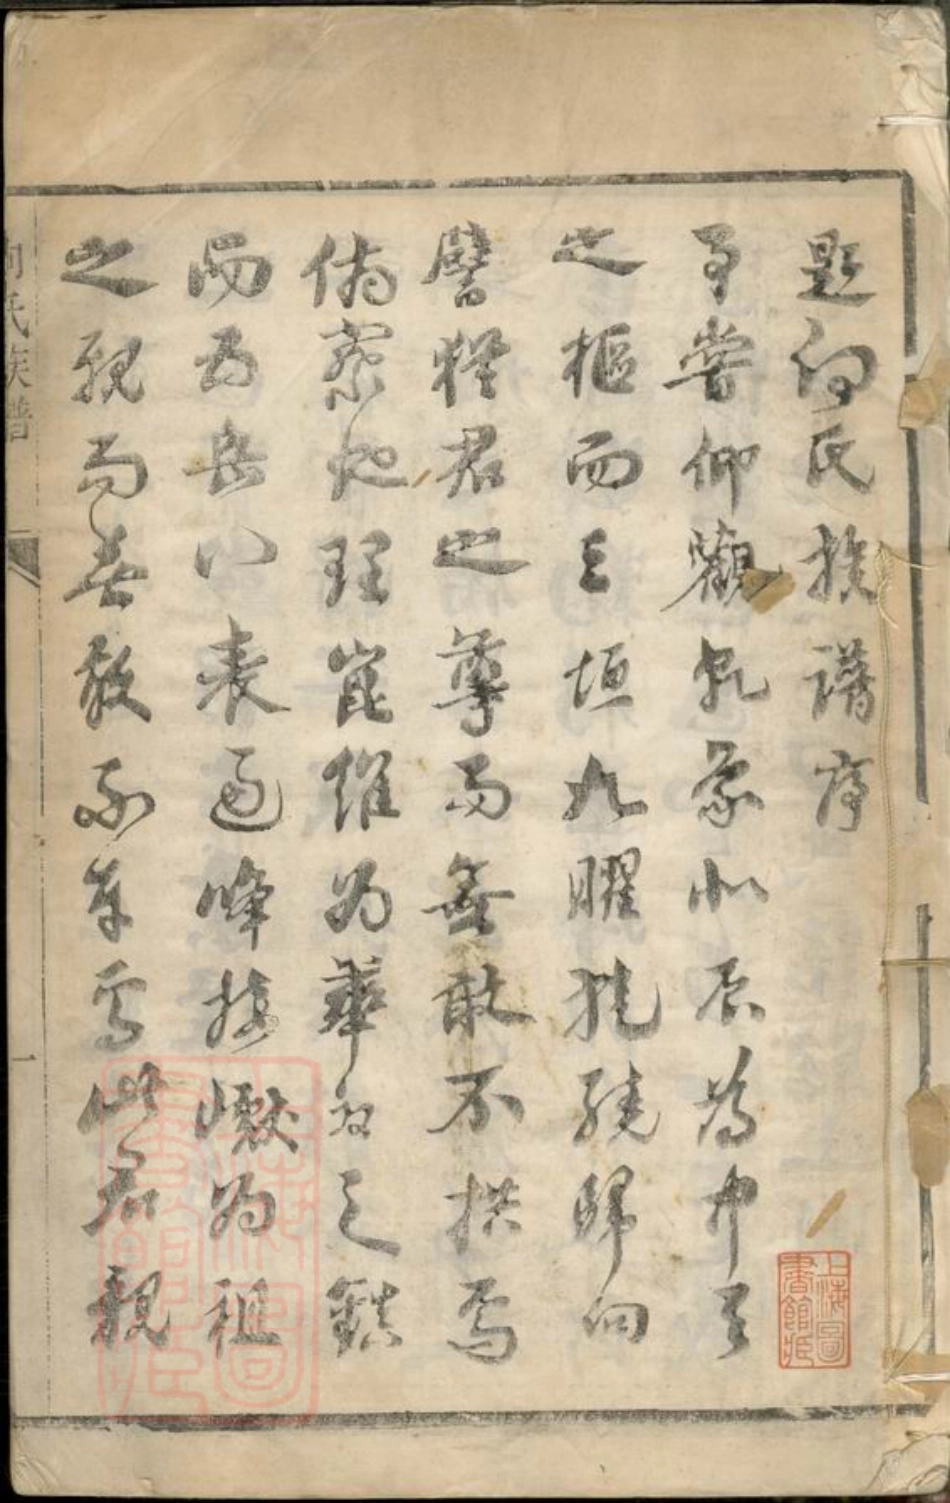 題向氏族譜序
予嘗仰觀乾象北辰為中天
之樞而三垣九曜旋繞歸向
譬猶君之尊而無敢不拱焉
俯察地理崑崙為華夏之鎮
而五岳八表通峰接巘為祖
之親而無敢不本焉此君親
向氏族譜
一
上海圖書館藏